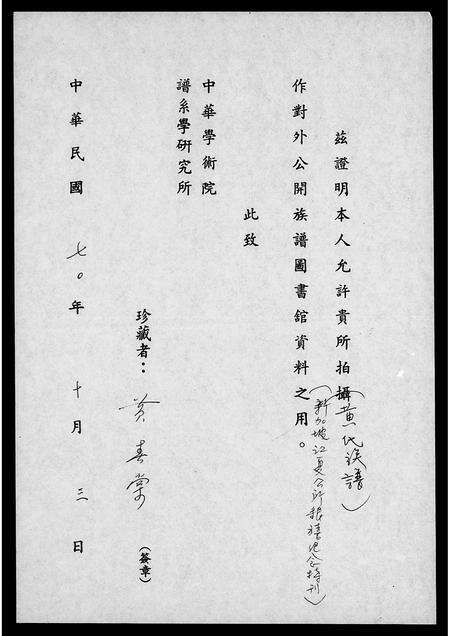 茲證明本人允許貴所拍攝(黃氏族譜)
(新加坡江夏公所銀禧紀念特刊)
作對外公開族譜圖書舘資料之用。
此致
中華學術院
譜系學研究所
珍藏者：黃 (簽章)
中華民國七〇年十月三日